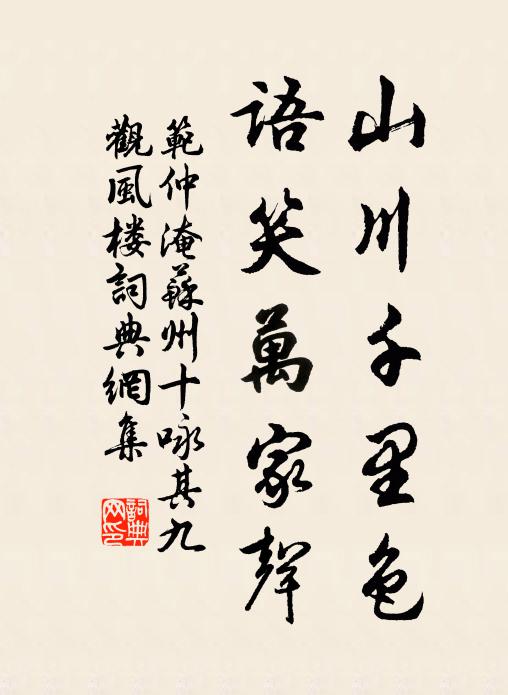 山川千里色
語笑萬家聲
範仲淹蘇州十咏其九
觀風楼詞典網集
詞典網印